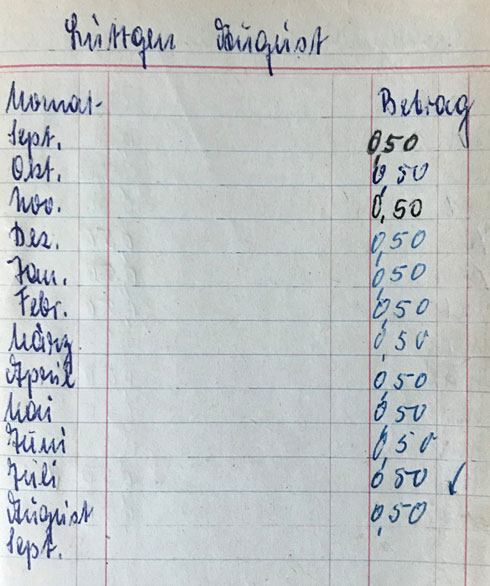 Lüttgen August
Monat Betrag
Sept. 0,50
Okt. 0,50
Nov. 0,50
Dez. 0,50
Jan. 0,50
Febr. 0,50
März 0,50
April 0,50
Mai 0,50
Juni 0,50
Juli 0,50
August 0,50
Sept.